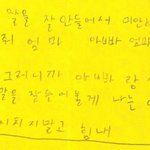 말을 잘 안들어서 미안
엄마 아빠 엄마
그러니까 아 랑
말을 잘 들어 볼게 나는
지말고 힘내